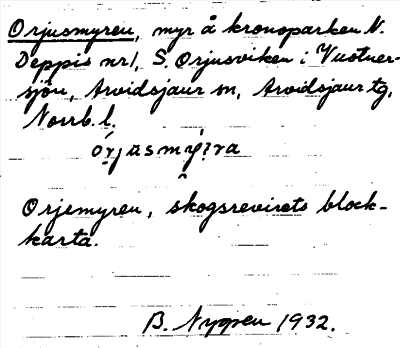 Orjusmyren, myr å kronoparken N.
Deppis nr 1, S. Orjusviken i Vuotner-
sjön, Arvidsjaur sn, Arvidsjaur tg,
Norrb. l.
Orjemyren, skogsrevirets block-
karta.
B. Nyppen 1932.